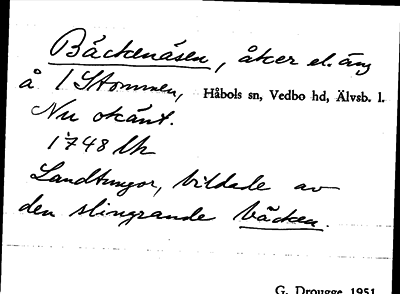 Bäckenäsen, åker el. äng
å 1 Stommen, Håbols sn, Vedbo hd, Älvsb. l.
Nu okänt.
1748 lk
Landtungor, bildade av
den slingrande bäcken.
G. Drougge 1951